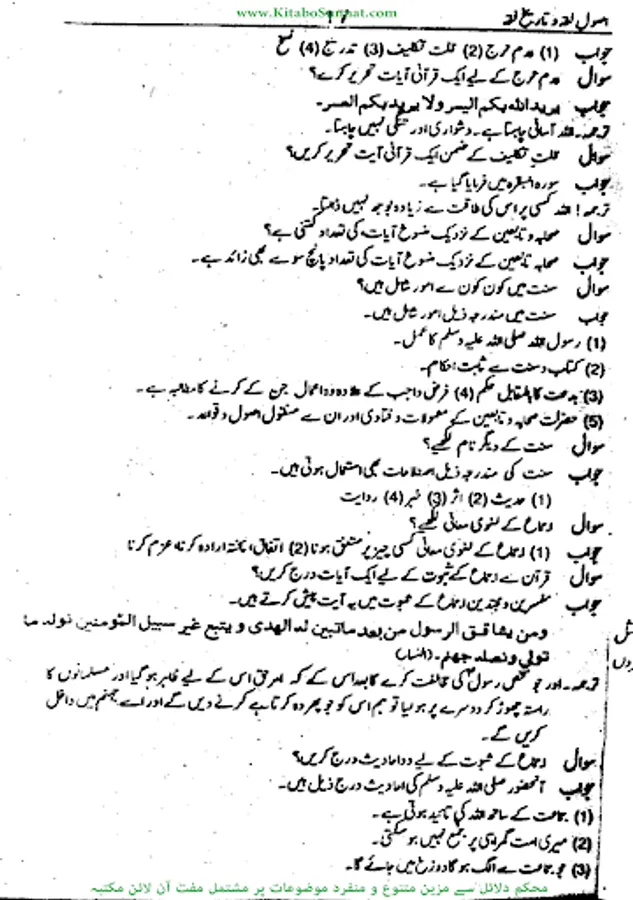 www.KitaboSunnat.com
اصول فقہ و تاریخ فقہ
جواب (1) عدم حرج (2) قلت تکلیف (3) تدریج (4) نسخ
سوال عدم حرج کے لیے ایک قرآنی آیات تحریر کرے؟
جواب یرید اللہ بکم الیسر ولا یرید بکم العسر۔
ترجمہ۔ اللہ آسانی چاہتا ہے۔ دشواری اور تنگی نہیں چاہتا۔
سوال قلت تکلیف کے ضمن ایک قرآنی آیت تحریر کریں؟
جواب سورہ البقرہ میں فرمایا گیا ہے۔
ترجمہ! اللہ کسی پر اس کی طاقت سے زیادہ بوجھ نہیں ڈالتا۔
سوال صحابہ و تابعین کے نزدیک منسوخ آیات کی تعداد کتنی ہے؟
جواب صحابہ تابعین کے نزدیک منسوخ آیات کی تعداد پانچ سو سے بھی زائد ہے۔
سوال سنت میں کون کون سے امور شامل ہیں؟
جواب سنت میں مندرجہ ذیل امور شامل ہیں۔
(1) رسول اللہ صلی اللہ علیہ وسلم کا عمل۔
(2) کتاب و سنت سے ثابت احکام۔
(3) بدعت کا بالمقابل حکم (4) فرض واجب کے علاوہ وہ اعمال جن کے کرنے کا مطالبہ ہے۔
(5) حضرات صحابہ و تابعین کے معمولات و فتاوی اور ان سے منقول اصول و قواعد۔
سوال سنت کے دیگر نام لکھیے؟
جواب سنت کی مندرجہ ذیل اصطلاحات بھی استعمال ہوتی ہیں۔
(1) حدیث (2) اثر (3) خبر (4) روایت
سوال اجماع کے لغوی معانی لکھیے؟
جواب (1) اجماع کے لغوی معانی کسی چیز پر متفق ہونا (2) اتفاق، پختہ ارادہ کرنا، عزم کرنا
سوال قرآن سے اجماع کے ثبوت کے لیے ایک آیات درج کریں؟
جواب مفسرین و مجتہدین اجماع کے ثبوت میں یہ آیت پیش کرتے ہیں۔
ومن یشاقق الرسول من بعد ماتبین لہ الھدی و یتبع غیر سبیل المؤمنین نولہ ما
تولی ونصلہ جھنم۔ (النساء)
ترجمہ۔ اور جو شخص رسول کی مخالفت کرے گا بعد اس کے کہ امر حق اس کے لیے ظاہر ہو گیا اور مسلمانوں کا
راستہ چھوڑ کر دوسرے پر ہو لیا تو ہم اس کو جو پھر وہ کرتا ہے کرنے دیں گے اور اسے جہنم میں داخل
کریں گے۔
سوال اجماع کے ثبوت کے لیے دو احادیث درج کریں؟
جواب آنحضور صلی اللہ علیہ وسلم کی احادیث درج ذیل ہیں۔
(1) جماعت کے ساتھ اللہ کی تائید ہوتی ہے۔
(2) میری امت گمراہی پر جمع نہیں ہو سکتی۔
(3) جو جماعت سے الگ ہو گا وہ دوزخ میں جائے گا۔
محکم دلائل سے مزین متنوع و منفرد موضوعات پر مشتمل مفت آن لائن مکتبہ